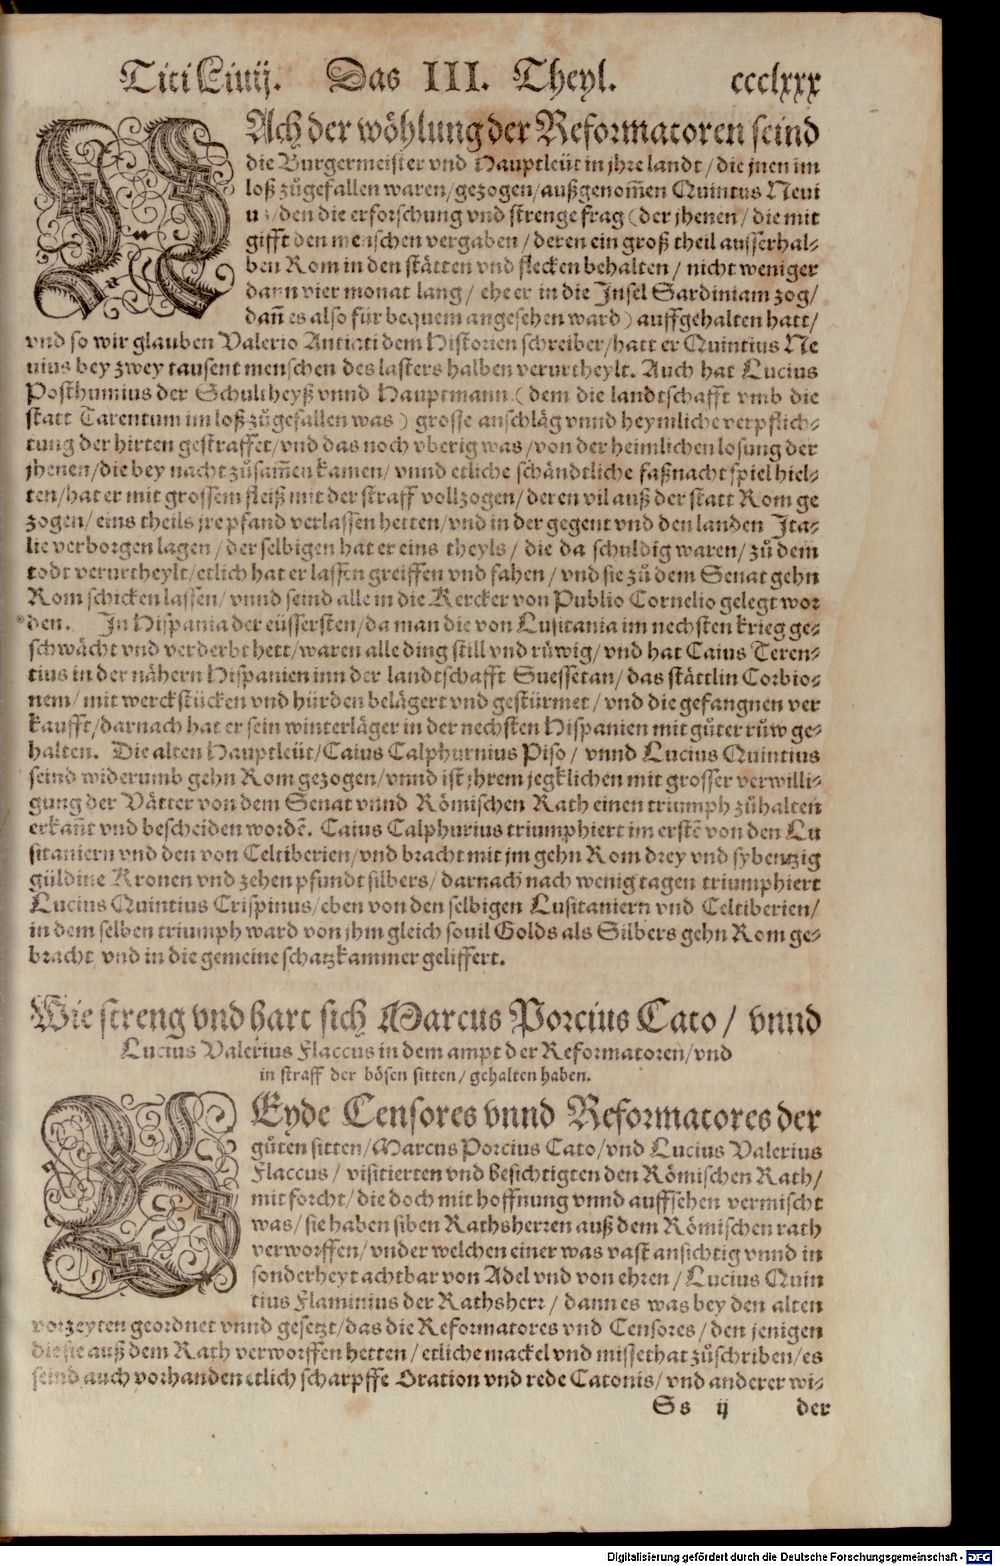 Titi Liuij. Das III. Theyl. ccclxxx
NAch der wöhlung der Reformatoren seind
die Burgermeister vnd Hauptleüt in jhre landt / die jnen im
loß zůgefallen waren / gezogen / außgenom̃en Quintus Neui
us / den die erforschung vnd strenge frag (der jhenen / die mit
gifft den menschen vergaben / deren ein groß theil ausserhal⸗
ben Rom in den stätten vnd flecken behalten / nicht weniger
dann vier monat lang / ehe er in die Insel Sardiniam zog /
dañ es also für bequem angesehen ward) auffgehalten hatt /
vnd so wir glauben Valerio Antiati dem Historien schreiber / hatt er Quintius Ne
uius bey zwey tausent menschen des lasters halben verurtheylt. Auch hat Lucius
Posthumius der Schultheyß vnnd Hauptmann (dem die landtschafft vmb die
statt Tarentum im loß zůgefallen was) grosse anschläg vnnd heymliche verpflich⸗
tung der hirten gestraffet / vnd das noch vberig was / von der heimlichen losung der
jhenen / die bey nacht zůsam̃en kamen / vnnd etliche schändtliche faßnacht spiel hiel⸗
ten / hat er mit grossem fleiß mit der straff vollzogen / deren vil auß der statt Rom ge
zogen / eins theils jre pfand verlassen hetten / vnd in der gegent vnd den landen Ita⸗
lie verborgen lagen / der selbigen hat er eins theyls / die da schuldig waren / zů dem
todt verurtheylt / etlich hat er lassen greiffen vnd fahen / vnd sie zů dem Senat gehn
Rom schicken lassen / vnnd seind alle in die Kercker von Publio Cornelio gelegt wor
den. In Hispania der eüssersten / da man die von Lusitania im nechsten krieg ge⸗
schwächt vnd verderbt hett / waren alle ding still vnd růwig / vnd hat Caius Teren⸗
tius in der nähern Hispanien inn der landtschafft Suessetan / das stättlin Corbio⸗
nem / mit werckstücken vnd hürden belägert vnd gestürmet / vnd die gefangnen ver
kaufft / darnach hat er sein winterläger in der nechsten Hispanien mit gůter růw ge⸗
halten. Die alten Hauptleüt / Caius Calphurnius Piso / vnnd Lucius Quintius
seind widerumb gehn Rom gezogen / vnnd ist jhrem jegklichen mit grosser verwilli⸗
gung der Vätter von dem Senat vnnd Römischen Rath einen triumph zůhalten
erkañt vnd bescheiden wordẽ. Caius Calphurius triumphiert im erstẽ von den Lu
sitaniern vnd den von Celtiberien / vnd bracht mit jm gehn Rom drey vnd sybentzig
güldine Kronen vnd zehen pfundt silbers / darnach nach wenig tagen triumphiert
Lucius Quintius Crispinus / eben von den selbigen Lusitaniern vnd Celtiberien /
in dem selben triumph ward von jhm gleich souil Golds als Silbers gehn Rom ge⸗
bracht vnd in die gemeine schatzkammer geliffert.
Wie streng vnd hart sich Marcus Porcius Cato / vnnd
Lucius Valerius Flaccus in dem ampt der Reformatoren / vnd
in straff der bösen sitten / gehalten haben.
BEyde Censores vnnd Reformatores der
gůten sitten / Marcus Porcius Cato / vnd Lucius Valerius
Flaccus / visitierten vnd besichtigten den Römischen Rath /
mit forcht / die doch mit hoffnung vnnd auffsehen vermischt
was / sie haben siben Rathsherren auß dem Römischen rath
verworffen / vnder welchen einer was vast ansichtig vnnd in
sonderheyt achtbar von Adel vnd von ehren / Lucius Quin
tius Flaminius der Rathsherr / dann es was bey den alten
vorzeyten geordnet vnnd gesetzt / das die Reformatores vnd Censores / den jenigen
die sie auß dem Rath verworffen hetten / etliche mackel vnd missethat zůschriben / es
seind auch vorhanden etlich scharpffe Oration vnd rede Catonis / vnd anderer wi⸗
Ss ij der
Digitalisierung gefördert durch die Deutsche Forschungsgemeinschaft - DFG